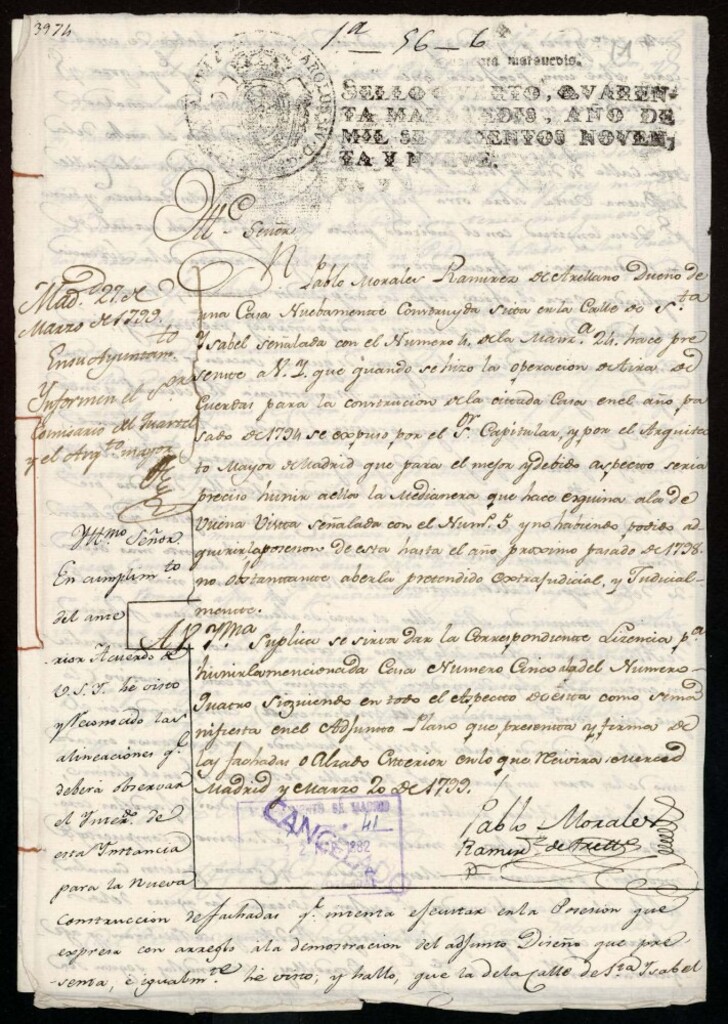 3974
1ª — 56 — 6
CAROLUS IV D. G.
Quarenta maravedis.
SELLO QVARTO, QVAREN-
TA MARAVEDIS, AÑO DE
MIL SETECIENTOS NOVEN-
TA Y NUEVE.
Señor
Dn Pablo Morales Ramirez de Arellano Dueño de
una Casa Nuebamente Construyda sita en la Calle de Sta
Ysabel señalada con el Numero 4. de la Manza. 24. hace pre
sente a V. Y. que quando se hizo la operacion de tira de
Cuerdas para la construcion de la citada Casa en el año pa
sado de 1794 se expuso por el Sr. Capitular, y por el Arquitec
to Mayor de Madrid que para el mejor y debido aspecto seria
preciso hunir a ella la Medianera que hace esquina a la de
Buena Vista señalada con el Numo. 5 y no habiendo podido ad
quirir la posesion de esta hasta el año proximo pasado de 1798.
no obstantante aberla pretendido extrajudicial, y Judicial-
mente.
A V. Yma. Suplica se sirva dar la Correspondiente Licencia pa
hunir la mencionada Casa Numero Cinco a la del Numero
Quatro siguiendo en todo el Aspecto de esta como se ma
nifiesta en el Adjunto Plano que presenta y firma de
las fachadas o Alzado Exterior en lo que Recivira Merced
Madrid y Marzo 20 de 1799.
Pablo Morales
Ramirz. de Arello
Madd. 27 de
Marzo de 1799.
En su Ayuntamto.
Ynformen el Sor
Comisario del Quartel
y el Arqto. mayor
Yltmo Señor
En cumplimto.
del ante
rior Acuerdo de
V. S. Y. he visto
y reconocido las
alineaciones qe.
deberá observar
el Interdo. de
esta Instancia
para la Nueva
Construccion de fachadas qe. intenta ejecutar en la Posesion que
expresa con arreglo á la demostracion del adjunto Diseño que pre
senta, é igualmte. he visto, y hallo, que la de la Calle de Sta Ysabel
AYUNTAMIENTO DE MADRID
41
CANCELADO